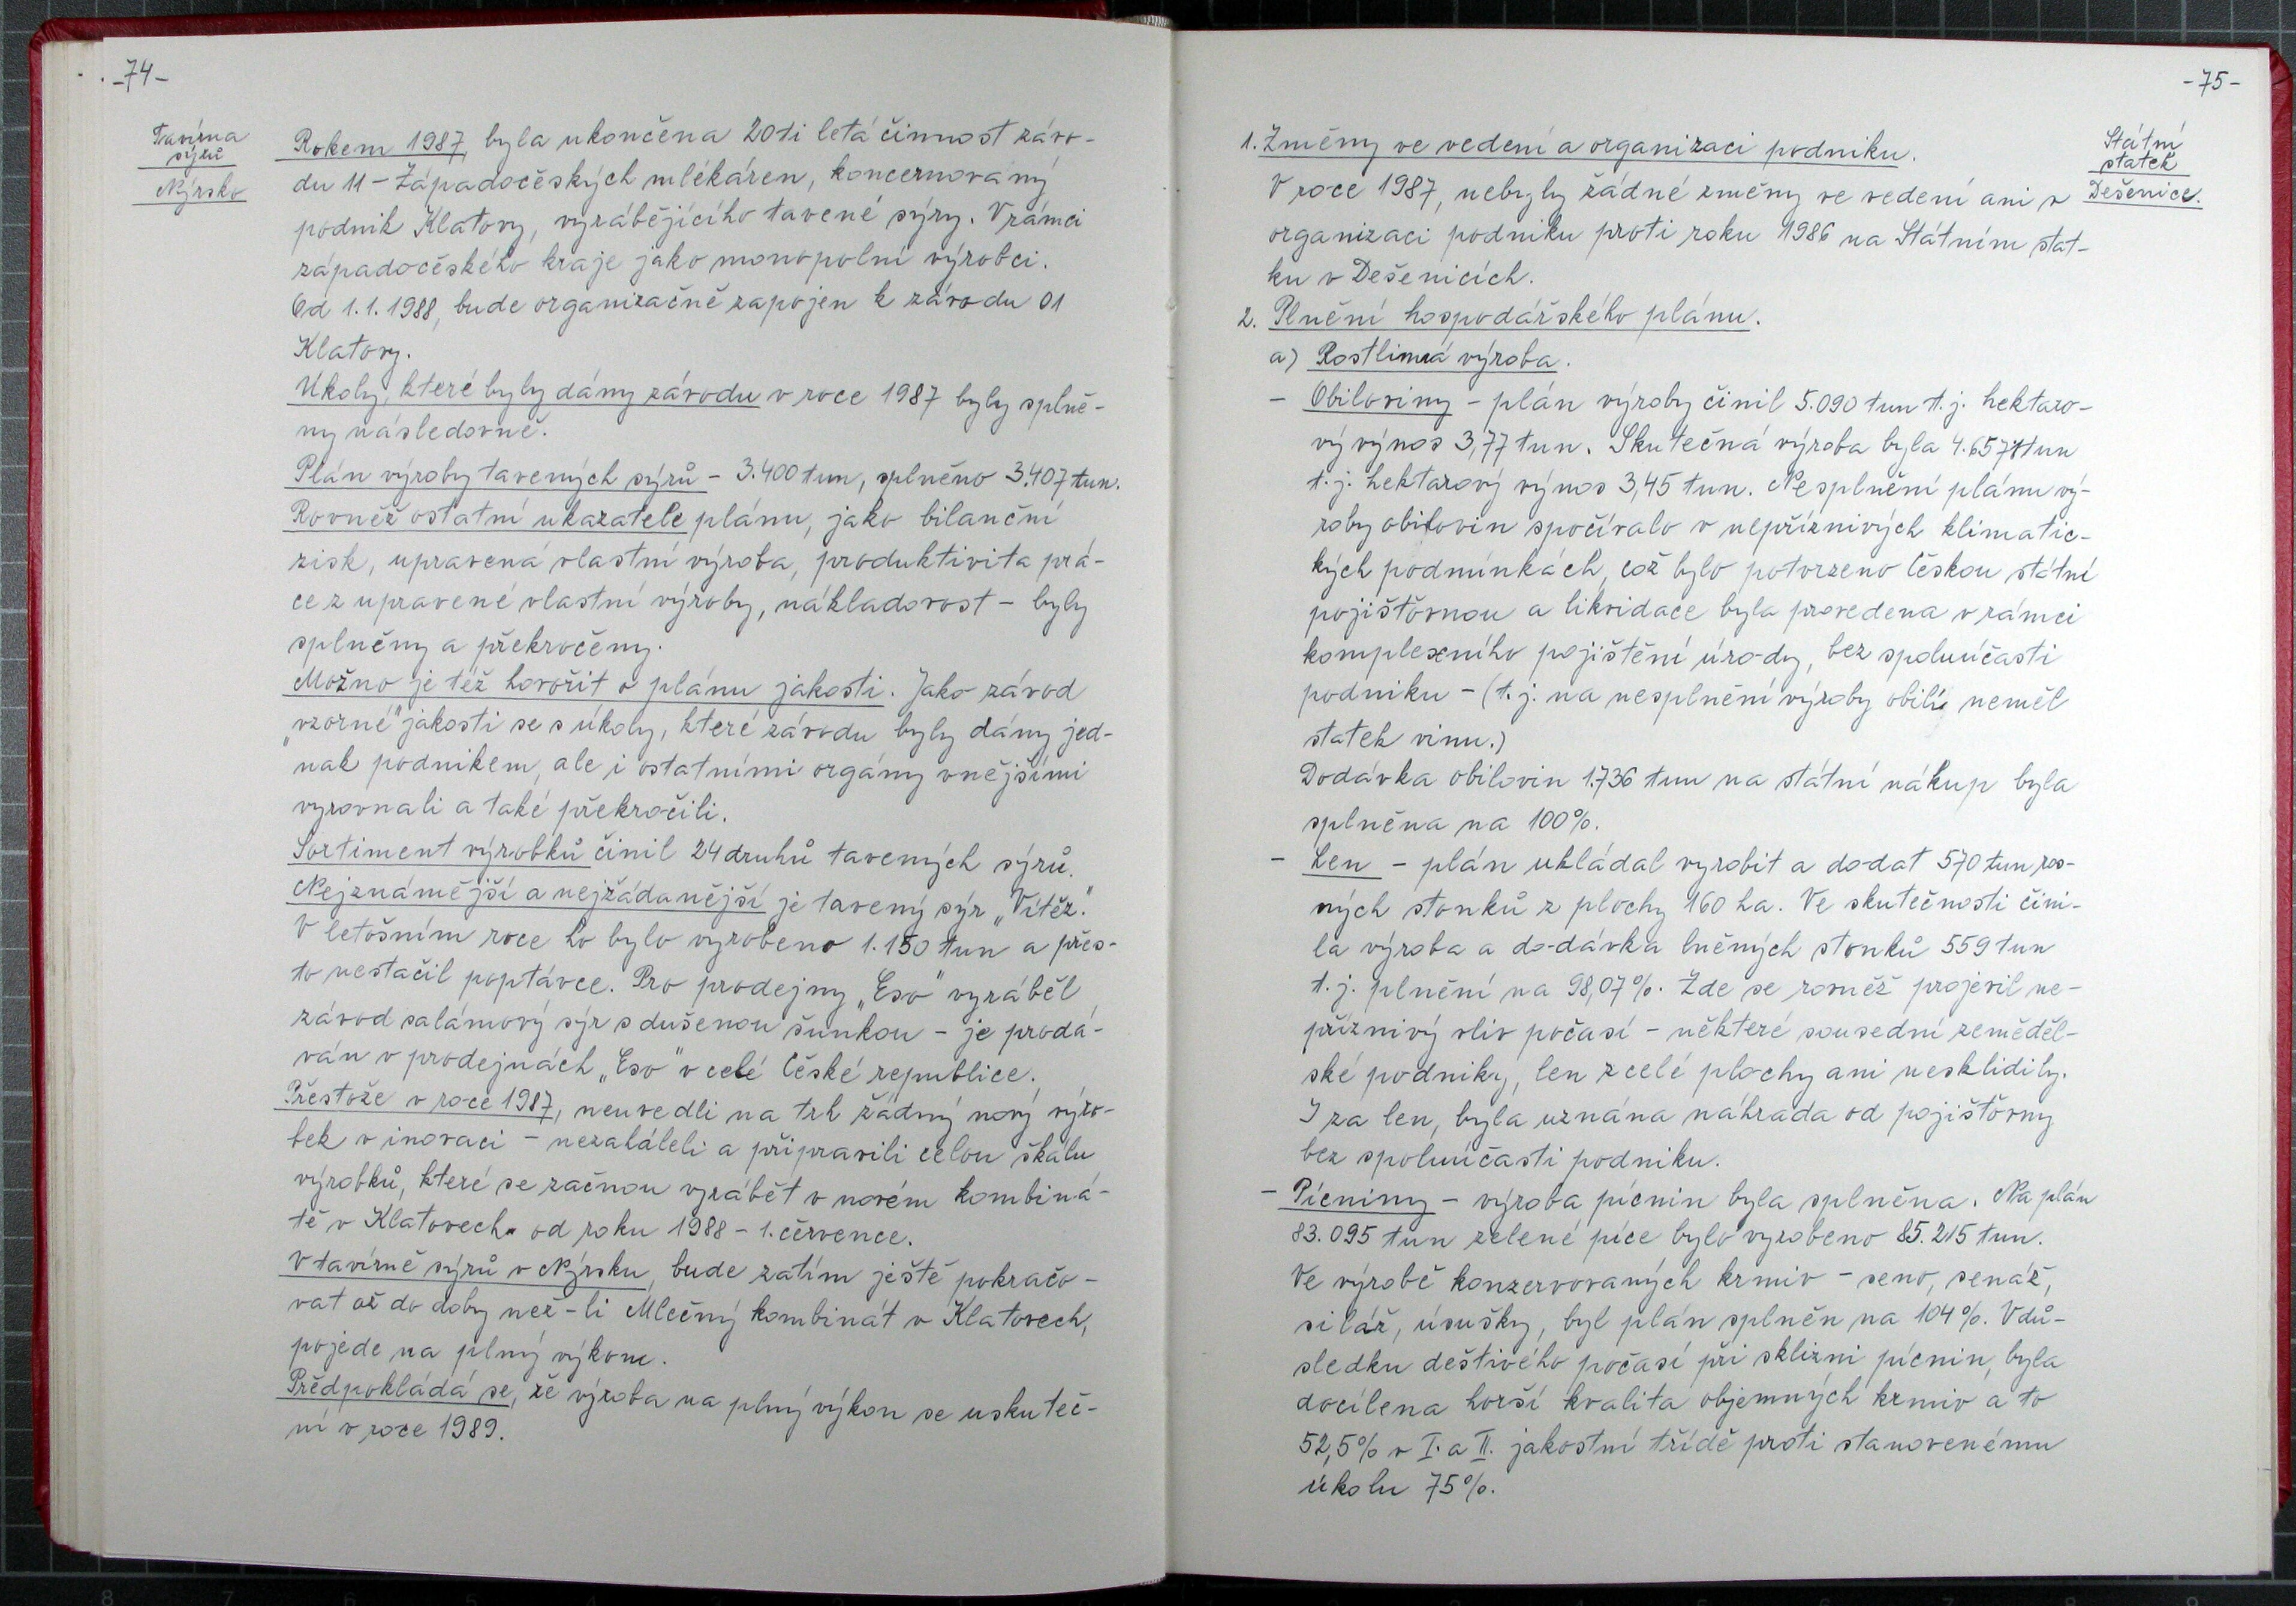 -74-
Tavírna
sýrů
Nýrsko
Rokem 1987, byla ukončena 20ti letá činnost závo-
du 11 - Západočeských mlékáren, koncernovaný
podnik Klatovy, vyrábějícího tavené sýry. V rámci
západočeského kraje jako monopolní výrobci.
Od 1.1.1988, bude organizačně zapojen k závodu 01
Klatovy.
Úkoly, které byly dány závodu v roce 1987 byly splně-
ny následovně.
Plán výroby tavených sýrů - 3.400 tun, splněno 3.407 tun.
Rovněž ostatní ukazatele plánu, jako bilanční
zisk, upravená vlastní výroba, produktivita prá-
ce z upravené vlastní výroby, nákladovost - byly
splněny a překročeny.
Možno je též hovořit o plánu jakosti. Jako závod
„vzorné" jakosti se s úkoly, které závodu byly dány jed-
nak podnikem, ale i ostatními orgány vnějšími
vyrovnali a také překročili.
Sortiment výrobků činil 24 druhů tavených sýrů.
Nejznámější a nejžádanější je tavený sýr „Vítěz."
V letošním roce ho bylo vyrobeno 1.150 tun a přes-
to nestačil poptávce. Pro prodejny „Eso" vyráběl
závod salámový sýr s dušenou šunkou - je prodá-
ván v prodejnách „Eso" v celé České republice.
Přestože v roce 1987, neuvedli na trh žádný nový výro-
bek v inovaci - nezaháleli a připravili celou škálu
výrobků, které se začnou vyrábět v novém kombiná-
tě v Klatovech od roku 1988 - 1. července.
V tavírně sýrů v Nýrsku, bude zatím ještě pokračo-
vat až do doby než-li Mlečný kombinát v Klatovech,
pojede na plný výkon.
Předpokládá se, že výroba na plný výkon se uskuteč-
ní v roce 1989.
-75-
Státní
statek
Dešenice.
1. Změny ve vedení a organizaci podniku.
V roce 1987, nebyly žádné změny ve vedení ani v
organizaci podniku proti roku 1986 na Státním stat-
ku v Dešenicích.
2. Plnění hospodářského plánu.
a) Rostlinná výroba.
- Obiloviny - plán výroby činil 5.090 tun t.j. hektaro-
vý výnos 3,77 tun. Skutečná výroba byla 4.657 tun
t.j. hektarový výnos 3,45 tun. Nesplnění plánu vý-
roby obilovin spočívalo v nepříznivých klimatic-
kých podmínkách, což bylo potvrzeno Českou státní
pojišťovnou a likvidace byla provedena v rámci
komplexního pojištění úrody, bez spoluúčasti
podniku - (t.j. na nesplnění výroby obilí neměl
statek vinu.)
Dodávka obilovin 1.736 tun na státní nákup byla
splněna na 100%.
- Len - plán ukládal vyrobit a dodat 570 tun ros-
ných stonků z plochy 160 ha. Ve skutečnosti čini-
la výroba a dodávka lněných stonků 559 tun
t.j. plnění na 98,07%. Zde se rovněž projevil ne-
příznivý vliv počasí - některé sousední zeměděl-
ské podniky, len z celé plochy ani nesklidily.
I za len, byla uznána náhrada od pojišťovny
bez spoluúčasti podniku.
- Pícniny - výroba pícnin byla splněna. Na plán
83.095 tun zelené píce bylo vyrobeno 85.215 tun.
Ve výrobě konzervovaných krmiv - seno, senáž,
siláž, úsušky, byl plán splněn na 104%. V dů-
sledku deštivého počasí při sklizni pícnin, byla
docílena horší kvalita objemných krmiv a to
52,5% v I. a II. jakostní třídě proti stanovenému
úkolu 75%.